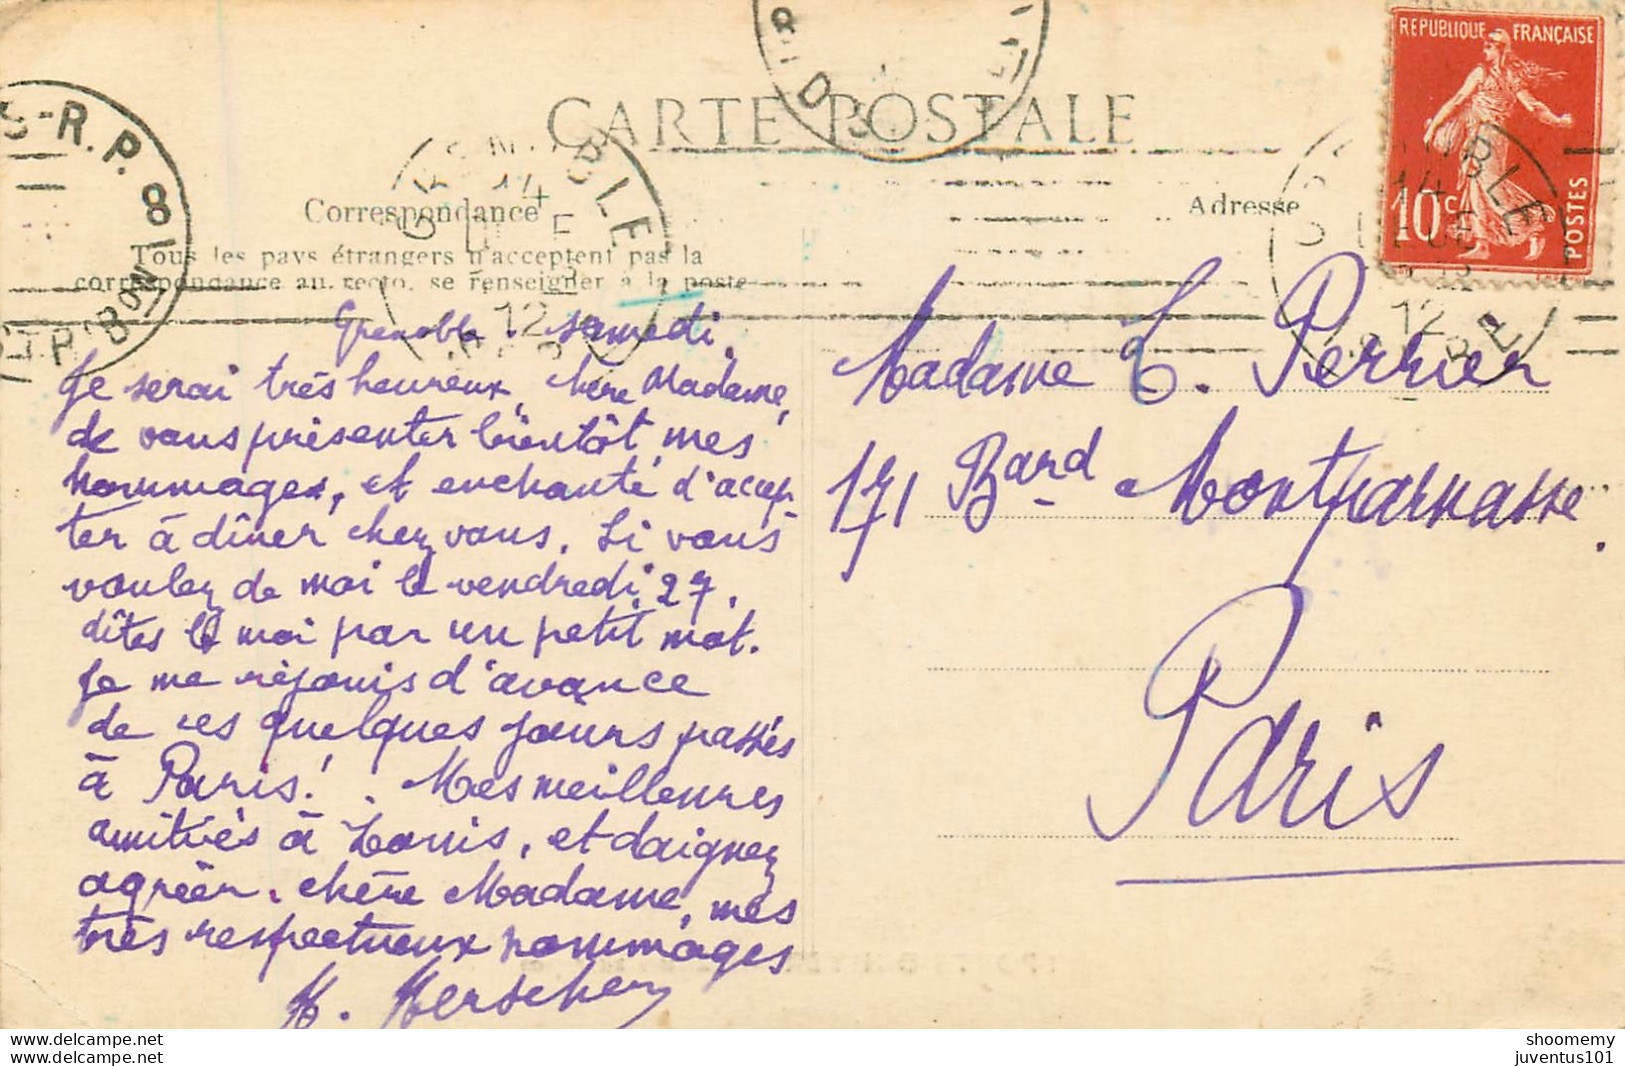 CARTE POSTALE
Correspondance
Adresse
Tous les pays étrangers n'acceptent pas la
correspondance au recto, se renseigner à la poste
REPUBLIQUE FRANÇAISE
10c
POSTES
S-R.P. 8
Grenoble. Samedi.
Je serai très heureux, chère Madame,
de vous présenter bientôt mes
hommages, et enchanté d'accep-
ter à dîner chez vous. Si vous
voulez de moi le vendredi 27,
dîtes le moi par un petit mot.
Je me réjouis d'avance
de ces quelques jours passés
à Paris! . Mes meilleures
amitiés à Louis, et daignez
agréer, chère Madame, mes
très respectueux hommages
Madame L. Perrier
171 Bard Montparnasse.
Paris
shoomemy
juventus101